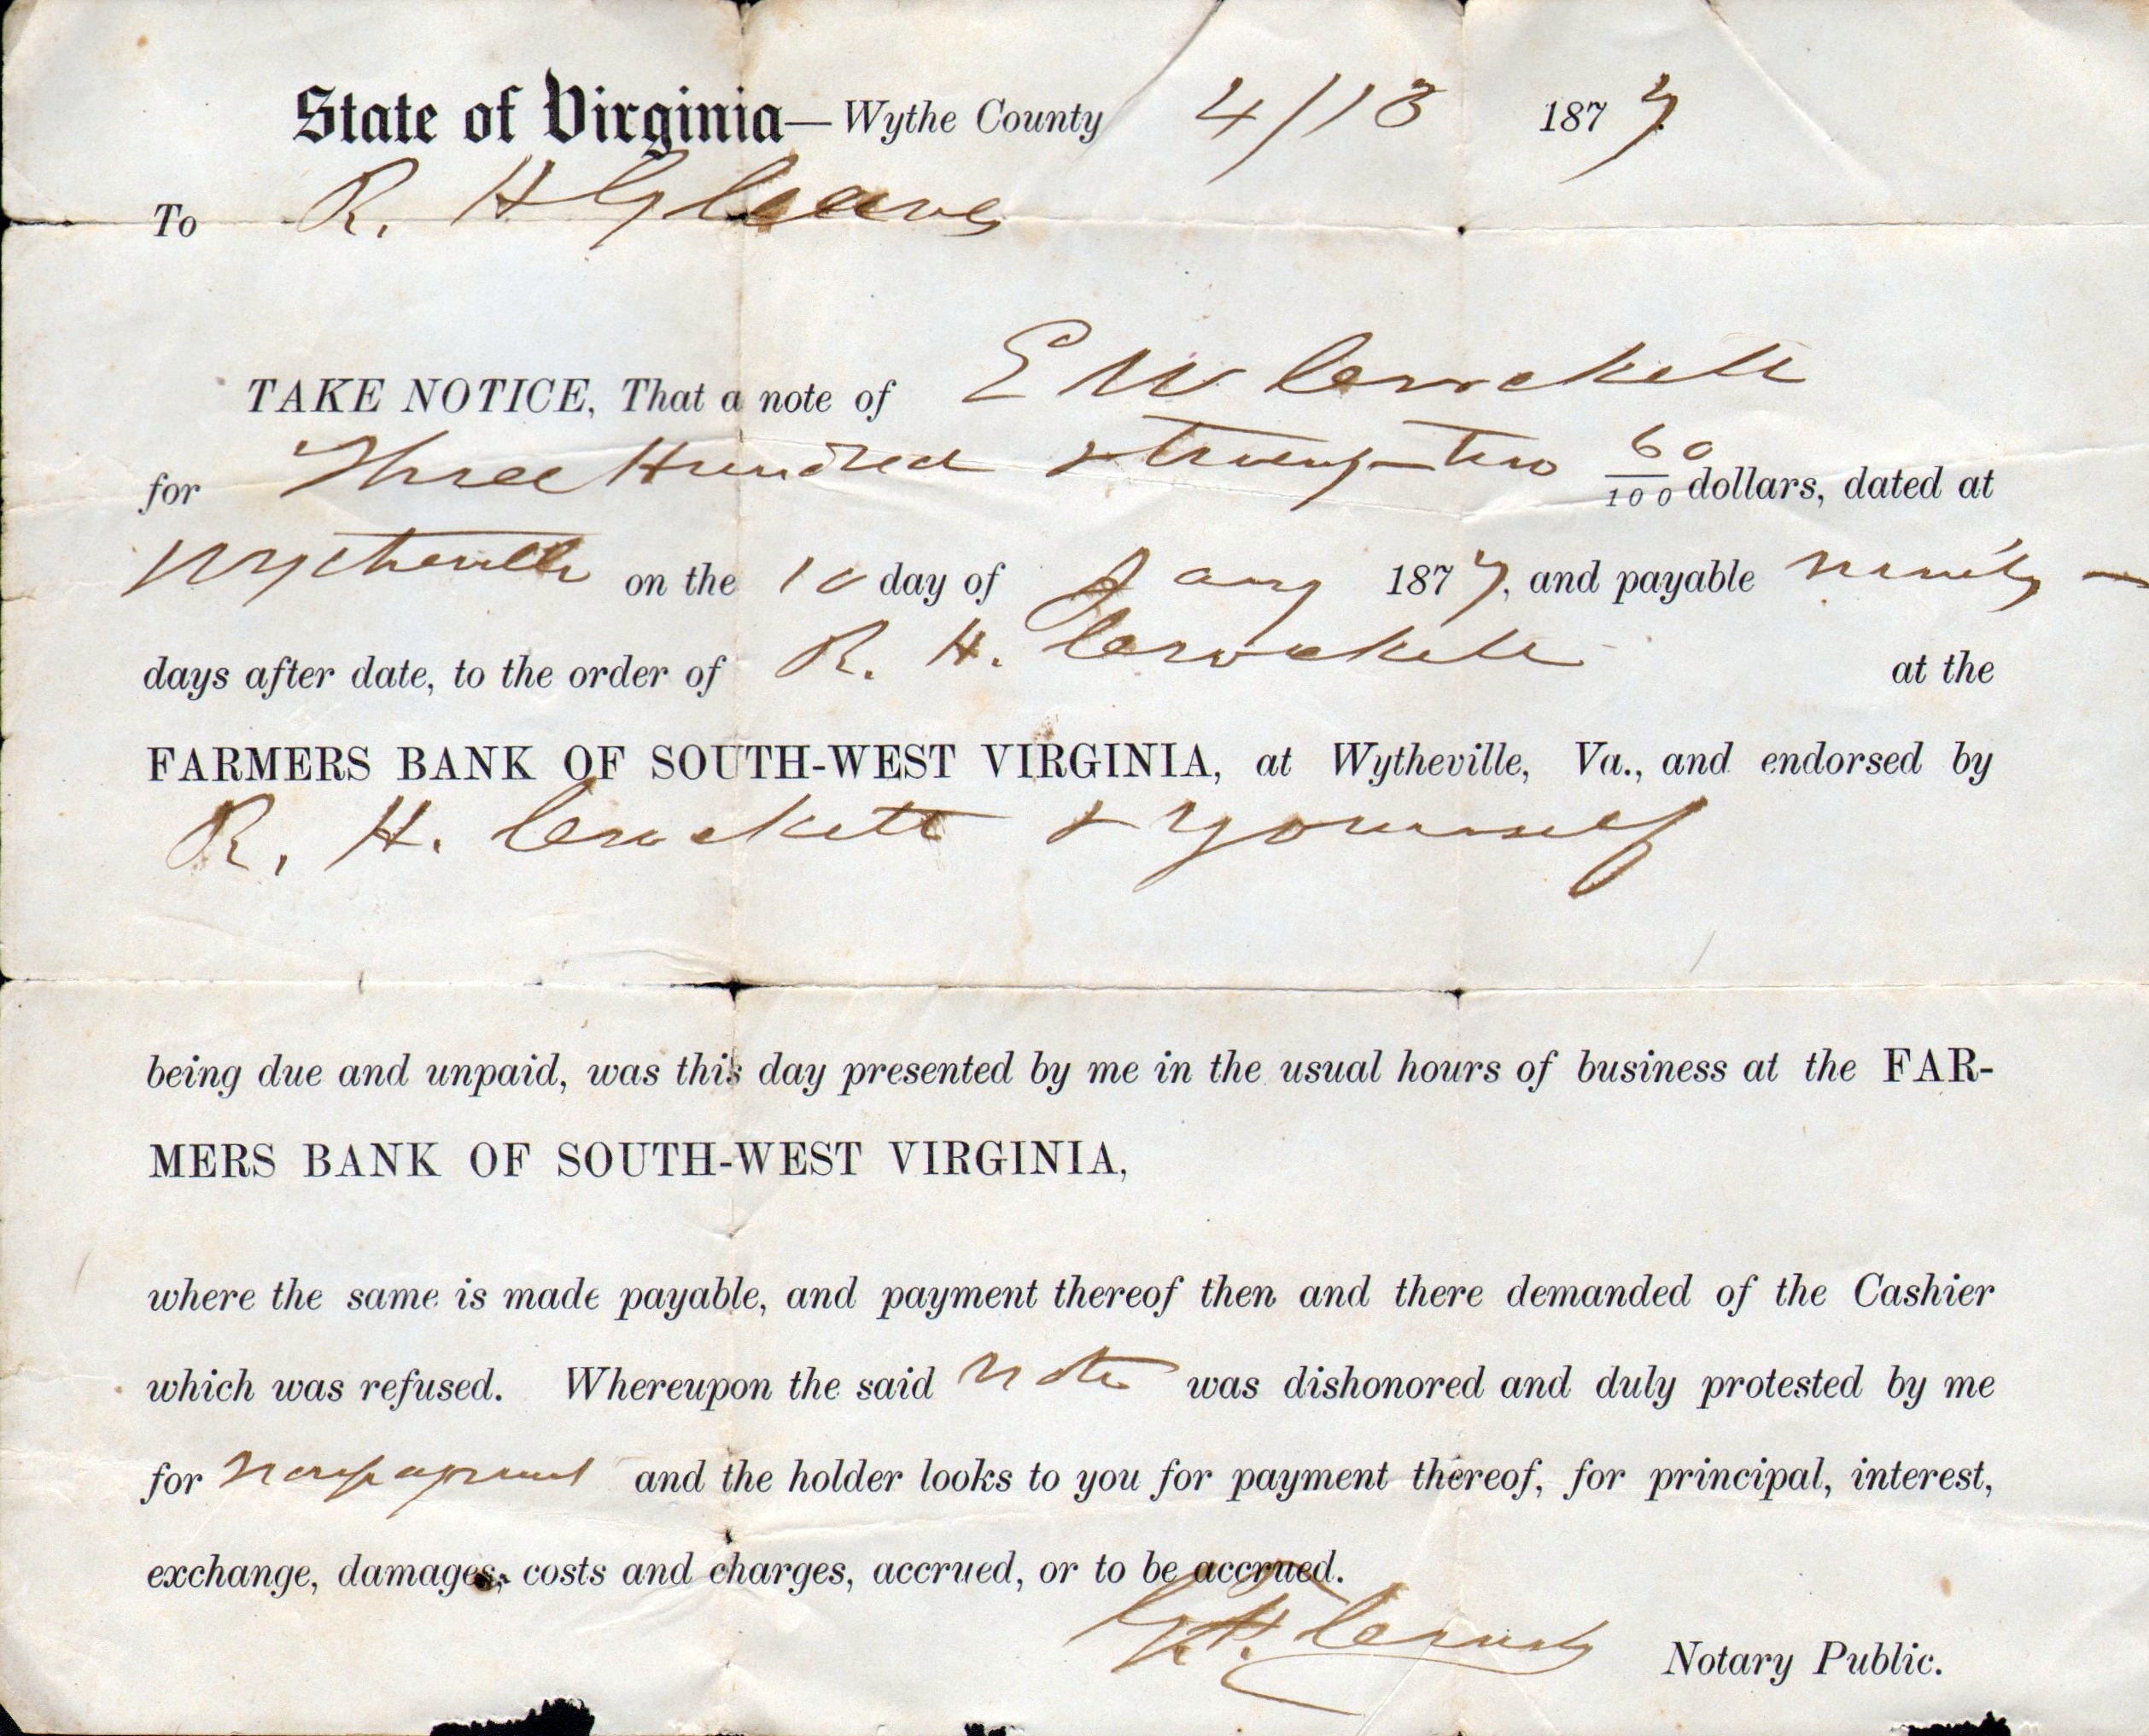 State of Virginia—Wythe County 4/13 1877.
To R. H Gleaves
TAKE NOTICE, That a note of E W Crockett
for Three Hundred & twenty-two 60/100 dollars, dated at
Wytheville on the 10 day of Jany 1877, and payable ninety —
days after date, to the order of R. H. Crockett at the
FARMERS BANK OF SOUTH-WEST VIRGINIA, at Wytheville, Va., and endorsed by
R. H. Crockett & yourself
being due and unpaid, was this day presented by me in the usual hours of business at the FAR-
MERS BANK OF SOUTH-WEST VIRGINIA,
where the same is made payable, and payment thereof then and there demanded of the Cashier
which was refused. Whereupon the said note was dishonored and duly protested by me
for nonpayment and the holder looks to you for payment thereof, for principal, interest,
exchange, damages, costs and charges, accrued, or to be accrued.
Notary Public.